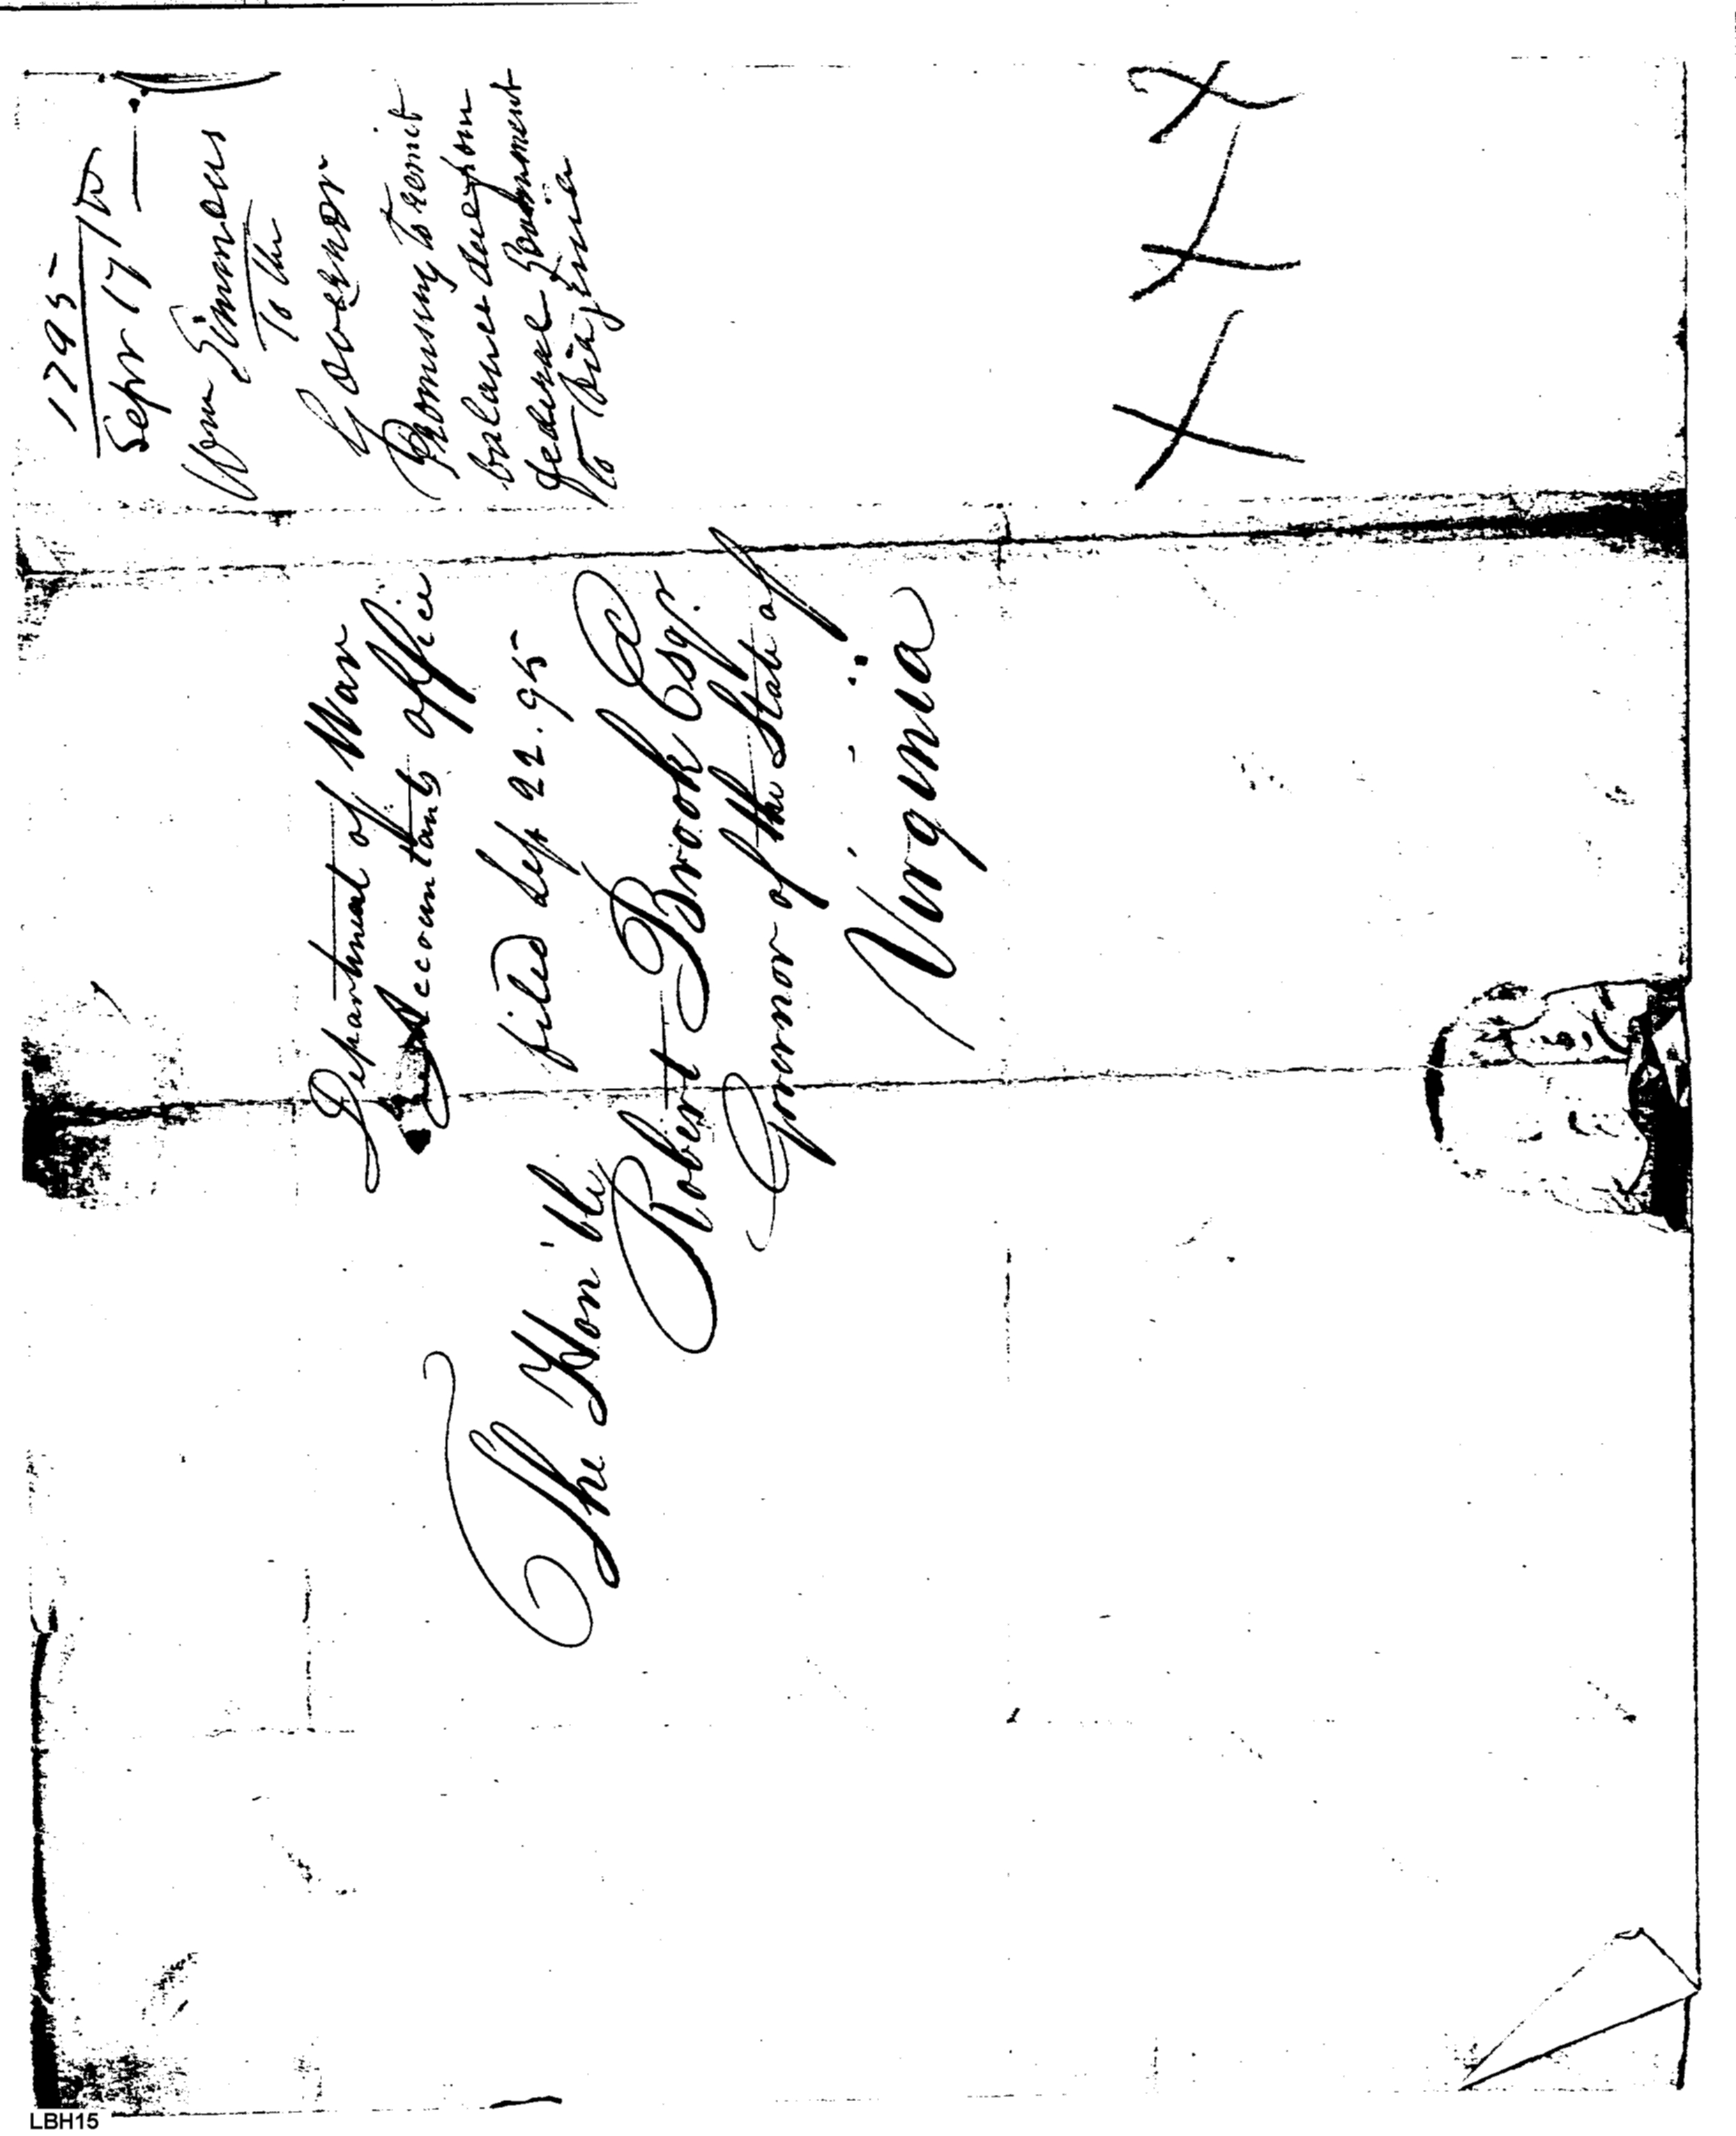 1795
Sepr 17th
Wm Simmons
To the
Governor
Promising to remit
balance due from
federal Government
to Virginia
Department of War
Accountants office
filed Sep 22. 95
The Hon'ble
Robert Brook Esqr.
Governor of the State of
Virginia
LBH15